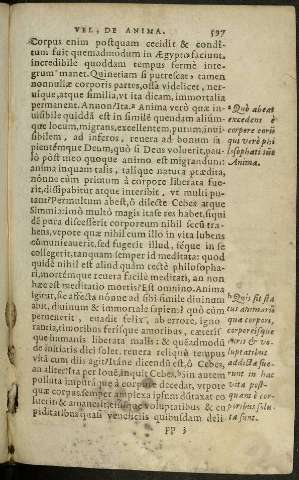 VEL, DE ANIMA. 597
Corpus enim postquam cecidit & condi-
tum fuit quemadmodum in Ægypto faciunt,
incredibile quoddam tempus fermè inte-
grum manet. Quinetiam si putrescat, tamen
nonnullæ corporis partes, ossa videlicet, ner-
uique, atque similia, vt ita dicam, immortalia
permanent. Annon? Ita. Anima verò quæ in-
uisibilis quiddã est in simile quendam alium-
que locum, migrans, excellentem, purum, inui-
sibilem, ad inferos, reuera ad bonum sa
pientémque Deum, quò si Deus voluerit, pau-
lò pòst meo quoque animo est migrandum:
anima inquam talis, talisque natura prædita,
nónne cùm primum à corpore liberata fue-
rit, dissipabitur atque interibit, vt multi pu-
tant? Permultum abest, ô dilecte Cebes atque
Simmia: imò multò magis ita se res habet, siqui
dē pura discesserit corporeum nihil secū tra-
hens, vtpote quæ nihil cum illo in vita lubens
cōmunicauerit, sed fugerit illud, séque in se
collegerit, tanquam semper id meditata: quod
quidē nihil est aliud quàm rectè philosopha-
ri, mortémque reuera facilè meditari, an non
hæc est meditatio mortis? Est omnino. Anima
igitur, sic affecta nónne ad sibi simile diuinum
abit, diuinum & immortale sapiens? quò cùm
peruenerit, euadit felix, ab errore, igno-
rantia, timoribus ferisque amoribus, cæteris-
que humanis liberata malis: & quēadmodū
de initiatis dici solet. reuera reliquū tempus
vitā cum diis agit? Itáne dicendū est, ô Cebes,
an aliter? Ita per Iouē, inquit Cebes. Sin autem
polluta impuráque à corpore decedat, vtpote
quæ corpus semper amplexa ipsum dūtaxat co
luerit & amauerit, eiusque voluptatibus & cu
piditatibus quasi veneficiis quibusdam deli
Quò abeat
excedens è
corpore eorū
qui verè phi
losophati sūt
Anima.
Quis sit sta
tus animarū
quæ corpori,
corporeisque
curis & vo-
luptatibus
addictæ fue-
runt in hac
vita post-
quam è cor-
poribus solu-
tæ sunt.
PP 3